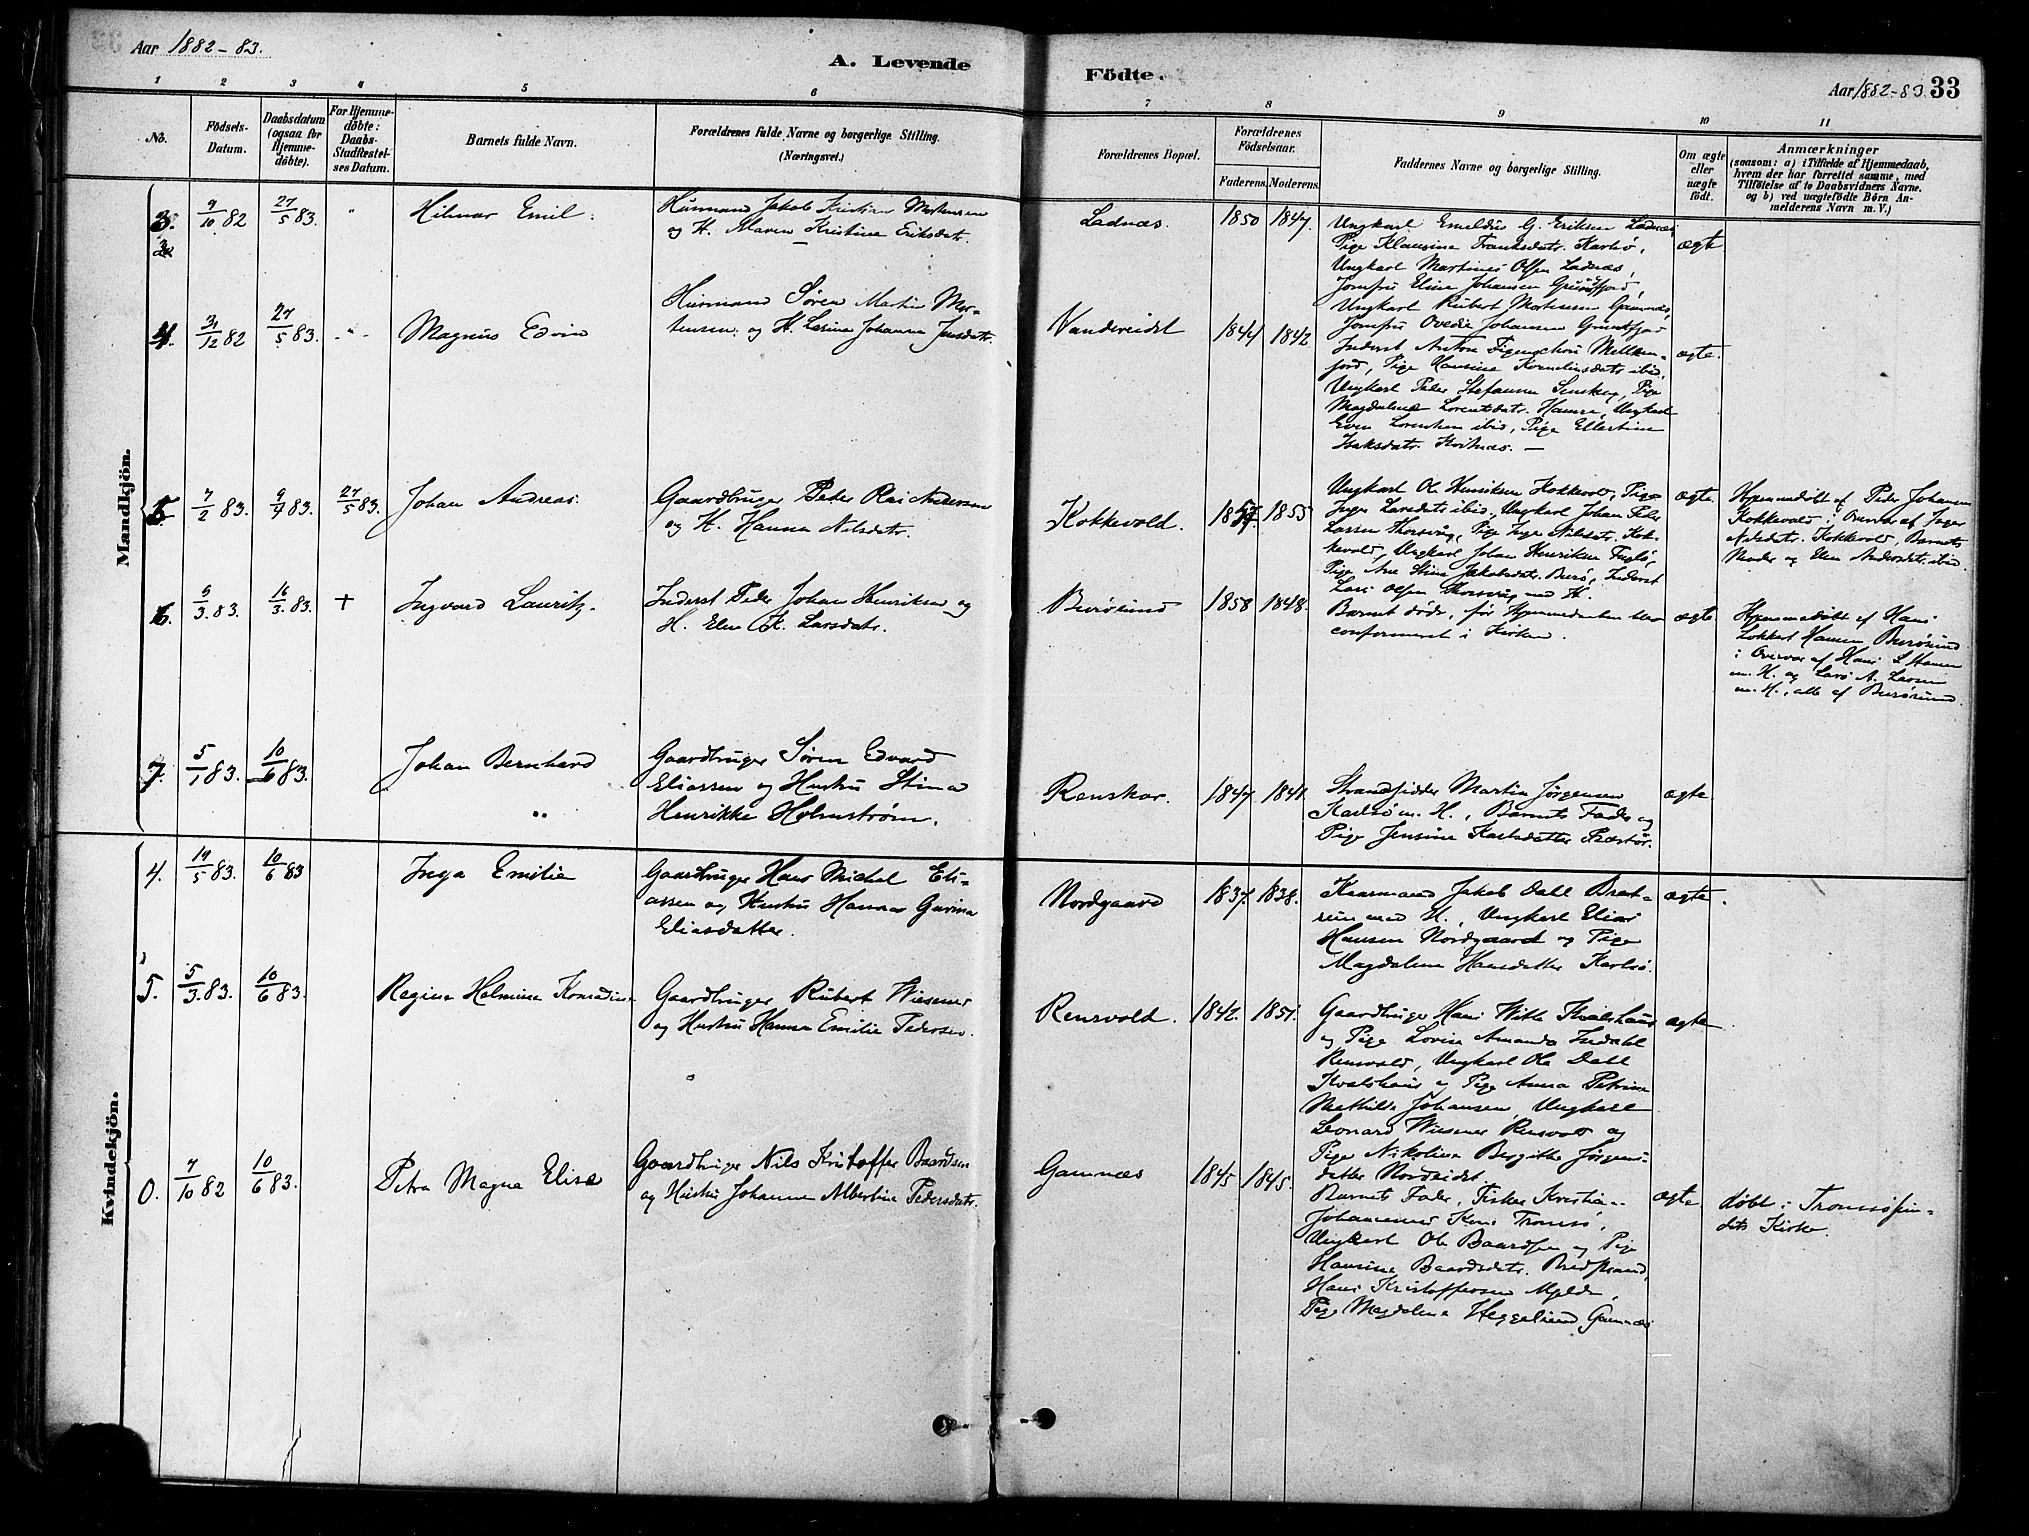 Aar 1882-83.
A. Levende
Födte.
Aar 1882-83. 33
1 2 3 4 5 6 7 8 9 10 11
No.
Födsels-
Datum.
Daabsdatum
(ogsaa for
Hjemme-
döbte).
For Hjemme-
döbte:
Daabs-
Stadfæstel-
ses Datum.
Barnets fulde Navn.
Forældrenes fulde Navne og borgerlige Stilling.
(Næringsvei.)
Forældrenes Bopæl.
Forældrenes
Födselsaar.
Faderens. Moderens.
Faddernes Navne og borgerlige Stilling.
Om ægte
eller
uægte
födt.
Anmærkninger
(saasom: a) i Tilfælde af Hjemmedaab,
hvem der har forrettet samme, med
Tilföielse af to Daabsvidners Navne.
og b) ved uægtefödte Börn An-
melderens Navn m. V.)
Mandkjön.
3. 9/10 82 27/5 83. " Hilmar Emil.
Husmand Jakob Kristian Mortensen
og H. Maren Kristine Eriksdatr.
Ladnæs. 1850 1847.
Ungkarl Emeldus G. Eriksen Ladnæs,
Pige Klausine Franksdatr. Karlsø,
Ungkarl Martines Olsen Ladnæs,
Jomfru Eline Johansen Grundfjord,
ægte
4. 31/12 82 27/5 83. " Magnus Edvin
Husmand Søren Martin Mor-
tensen og H. Lasine Johanna Jensdatr.
Vandereidet 1844 1842
Ungkarl Rubert Mortensen
Jomfru Ovedie Johansen
Inderst Anton Figenschou
Pige Hansine Kornelinsdatr ibid,
Ungkarl Peder Stefansen Pige
Magdalena Lorentsdatr. Hamre, Ungkarl
Even Lorentsen ibid, Pige Ellertine
Isaksdatr. Kvitnæs.
ægte.
5. 7/2 83. 9/4 83. 27/5 83. Johan Andreas.
Gaardbruger Peder Andersen
og H. Hanna Nilsdatr.
Kokkevold. 1855
Ungkarl Ole Henriksen Kokkevold, Pige
Inger Larsdatr ibid, Ungkarl Johan Peder
Larsen Thorsvåg, Pige Inge Nilsdatr. Kok-
kevold, Ungkarl Johan Henriksen Fuglø,
Pige Ane Stina Jakobsdatr. Burø, Inderst
Lars Olsen Thorsvåg med H.
ægte.
Hjemmedøbt af Peder Johansen
Kokkevold i Overvær af Inger
Nilsdatr. Kokkevold, Barnets
Moder og Elen Andersdatr. ibid.
6. 9/3 83. 16/3 83. + Ingvard Lauritz.
Inderst Peder Johan Henriksen og
H. Elen K. Larsdatr.
Burøsund 1858 1848.
Barnet døde, før Hjemmedaaben blev
conformeret i Kirken.
ægte
Hjemmedøbt af Hans
Lokkert Hansen Burøsund
i Overvær af Hans L. Hansen
m. H. og Lars A. Larsen
m. H., alle af Burøsund.
7. 5/1 83. 10/6 83. Johan Bernhard
Gaardbruger Søren Edvard
Eliassen og Hustru Stina
Henrikke Holmstrøm.
Renskar. 1847 1841.
Strandsidder Martin Jørgensen
Karlsø m. H., Barnets Fader og
Pige Jensine Karlsdatter
ægte
Kvindekjön.
4. 19/5 83. 10/6 83 Inga Emilie
Gaardbruger Hans Michal Eli-
assen og Hustru Hanna Gurina
Eliasdatter.
Nordgaard 1837. 1838.
Kaarmand Jakob Dahl
med H., Ungkarl Elias
Hansen Nordgaard og Pige
Magdalena Hansdatter Karlsø.
ægte.
5. 5/3 83. 10/6 83. Regine Helmine Konradine
Gaardbruger Rubert Wiesener
og Hustru Hanna Emilie Pedersen.
Rensvold. 1842. 1851.
Gaardbruger Hans Witte Kvalshaus
og Pige Lovise Amanda Indahl
Rensvold, Ungkarl Ole Dahl
Kvalshaus og Pige Anna Petrina
Mathilde Johansen, Ungkarl
Leonard Wiesener Rensvold og
Pige Nikoline Bergitte Jørgens-
datter Nordeidet.
ægte
0. 7/10 82 10/6 83. Petra Magna Elise
Gaardbruger Nils Kristoffer Baardsen
og Hustru Johanna Albertine Pedersdatr.
Gamnæs 1845 1845.
Barnets Fader, Fisker Kristian
Johannesen Tromsø,
Ungkarl Ole Baardsen og Pige
Hansine Baardsdatr. Bredstrand,
Hans Kristoffersen Mjelde,
Pige Magdalena Heggelund, Gamnæs
ægte
døbt i Tromsøsun-
dets Kirke.